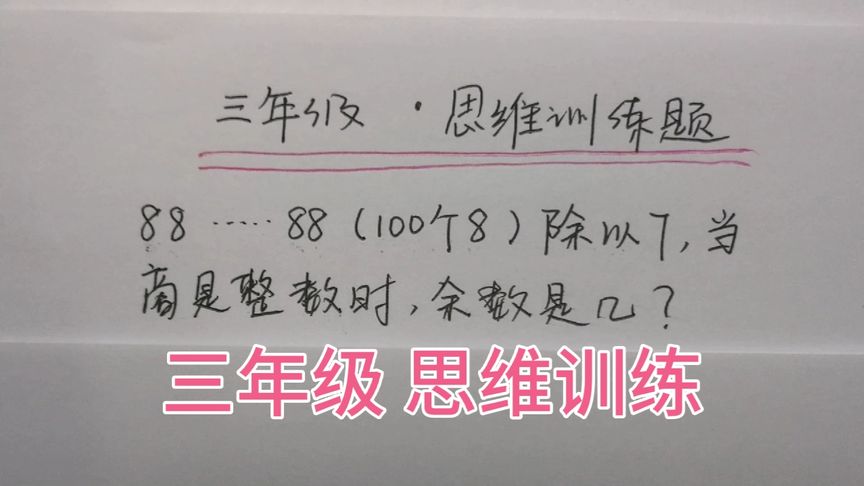 三年级·思维训练题
88……88(100个8)除以7,当
商是整数时,余数是几?
三年级 思维训练